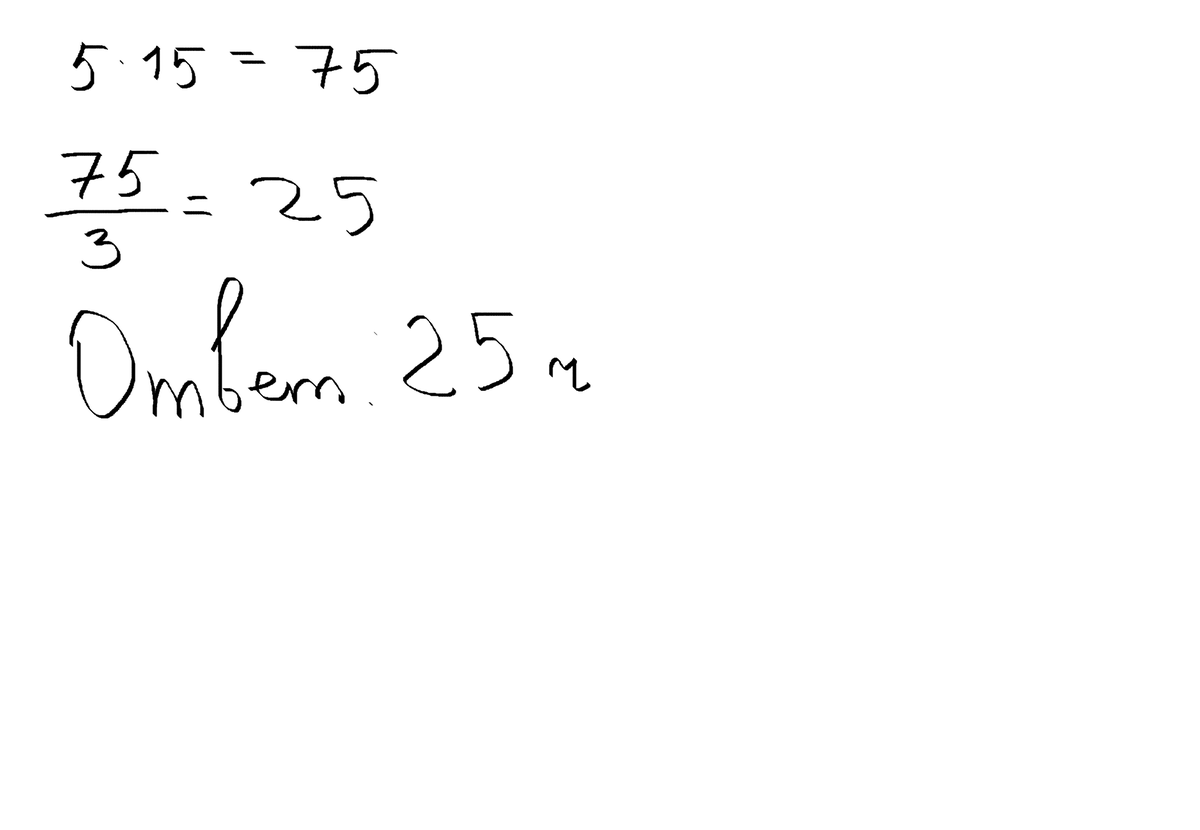 5·15 = 75
75/3 = 25
Ответ: 25 м